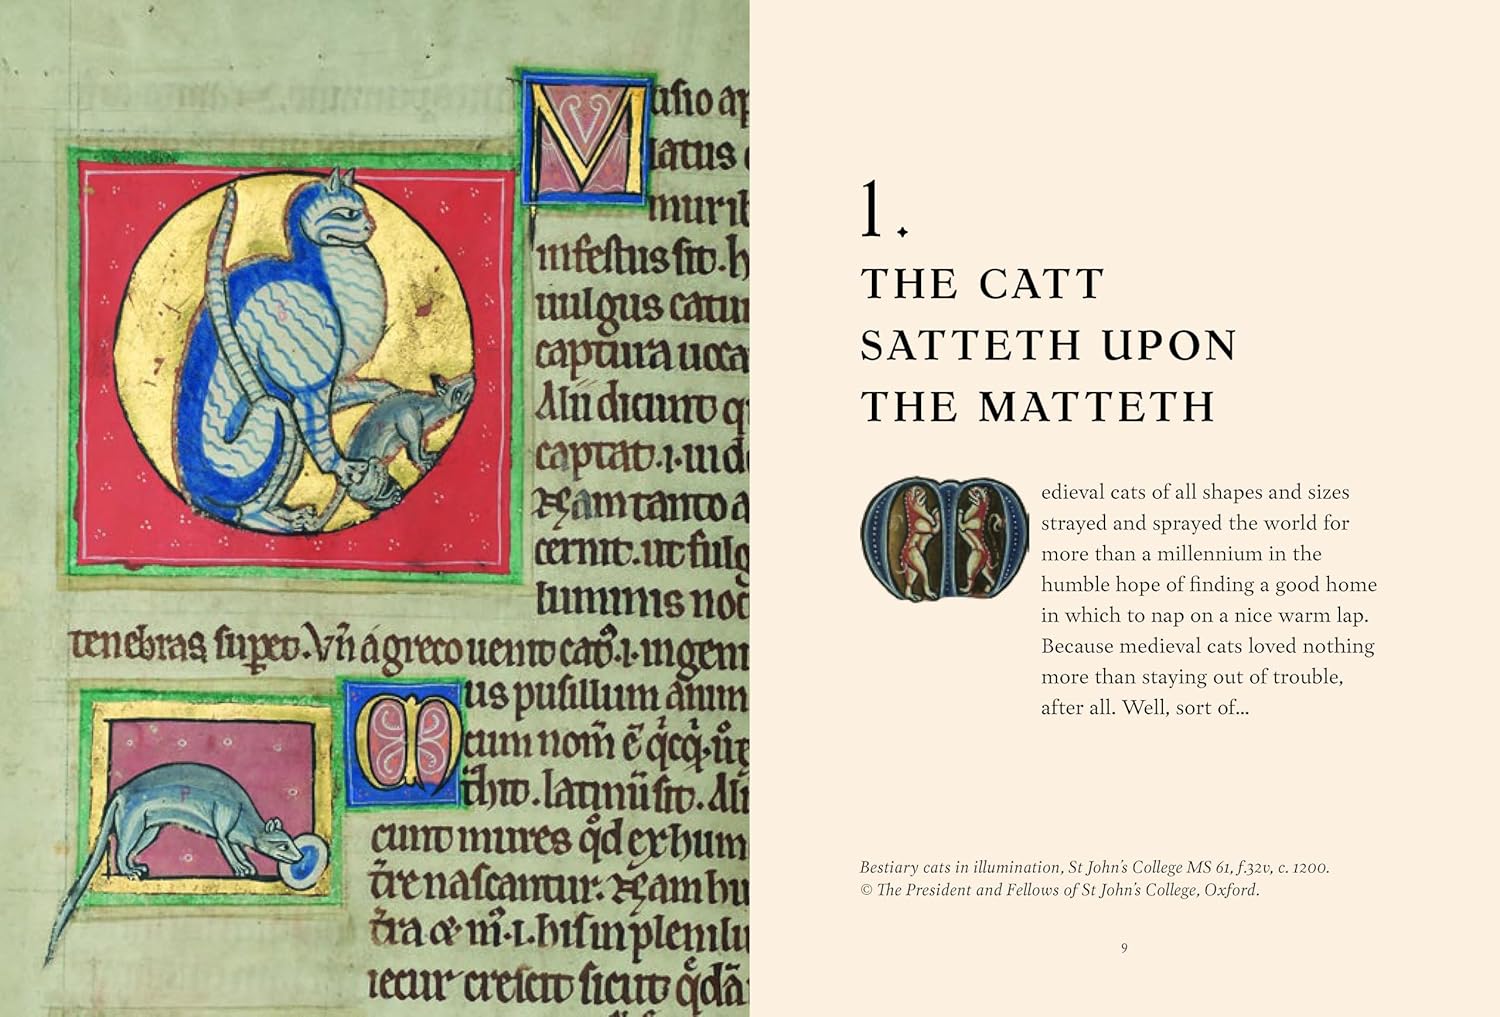 Musio ap
latus
murib
infestus sit. h
uulgus catu
captura uoca
Alii dicunt q
captat .i. uid
Nam tanto a
cernit. ut fulg
luminis noc
tenebras supet. Vn̄ a greco uenit .i. ingeni
Mus pusillum anim
nom̄ ē
latinū sit. Ali
cunt mures qd̵ ex hum
tre nascantur. Nam hu
.i. his in plenilu
iecur crescit sicut
1.
THE CATT
SATTETH UPON
THE MATTETH
Medieval cats of all shapes and sizes
strayed and sprayed the world for
more than a millennium in the
humble hope of finding a good home
in which to nap on a nice warm lap.
Because medieval cats loved nothing
more than staying out of trouble,
after all. Well, sort of…
Bestiary cats in illumination, St John's College MS 61, f.32v, c. 1200.
© The President and Fellows of St John's College, Oxford.
9